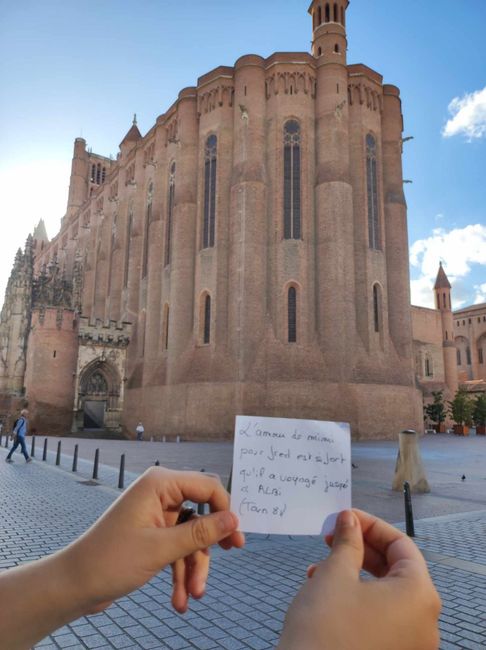 L'amour de mimi
pour fred est si fort
qu'il a voyagé jusqu'
à ALBi
(Tarn 81)